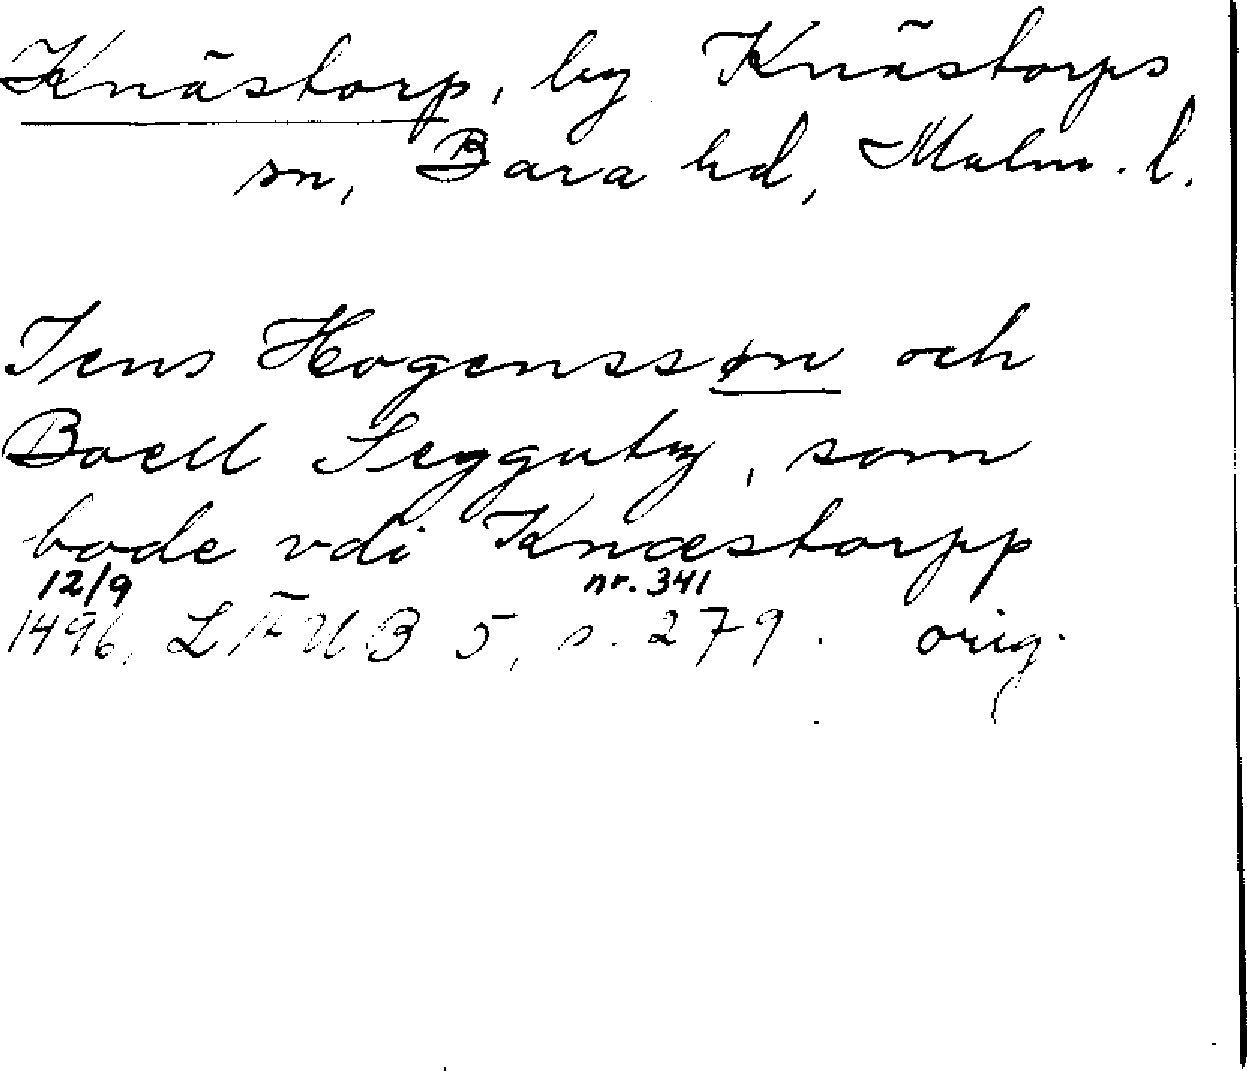 Knästorp, by Knästorps
sn, Bara hd, Malm. l.
Jens Hogenssøn och
Boell Seygguty, som
bode vdi Knæstorpp
12/9 nr. 341
1496, LÄUB 5, s. 279. orig.